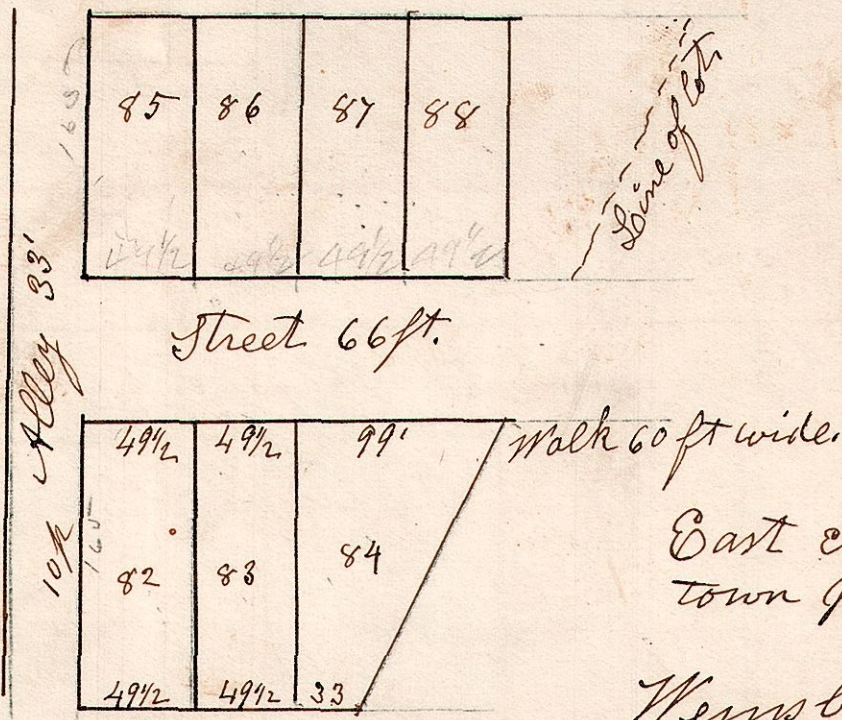 85 86 87 88
165
49½ 49½ 49½
Line of lots
Alley 33'
Street 66 ft.
49½ 49½ 99'
Walk 60 ft wide.
165
82 83 84
East
town
49½ 49½ 33